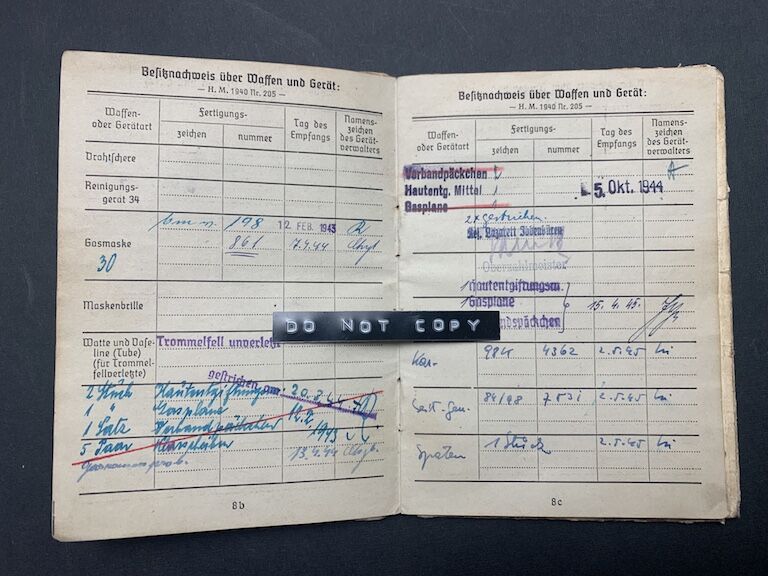 Besitznachweis über Waffen und Gerät:
— H. M. 1940 Nr. 205 —
Waffen- oder Geräteart
Fertigungs-
zeichen
nummer
Tag des Empfangs
Namens-zeichen des Gerät-verwalters
Drahtschere
Reinigungs-gerät 34
198 12 FEB. 1943 R
Gasmaske 861 7.9.44
30
Maskenbrille
Watte und Vase-line (Tube) (für Trommel-fellverletzte)
Trommelfell unverletzt
gestrichen am: 20.3.44
2 Stück Hautentgiftungsm.
1 " Gasplane 12.2.
1 Satz Verbandpäckchen 1943
5 Paar
13.4.44
8b
Besitznachweis über Waffen und Gerät:
— H. M. 1940 Nr. 205 —
Waffen- oder Geräteart
Fertigungs-
zeichen
nummer
Tag des Empfangs
Namens-zeichen des Gerät-verwalters
Verbandpäckchen
Hautentg. Mittel 1
Gasplane 1
5. Okt. 1944
2x gestrichen.
Res. Lazarett Ibbenbüren
Oberzahlmeister
1 Hautentgiftungsm.
1 Gasplane 15.4.45.
DO NOT COPY
Kar. 984 4362 2.5.45
Seit. Gew. 84/98 7531 2.5.45
Spaten 1 Stück 2.5.45
8c